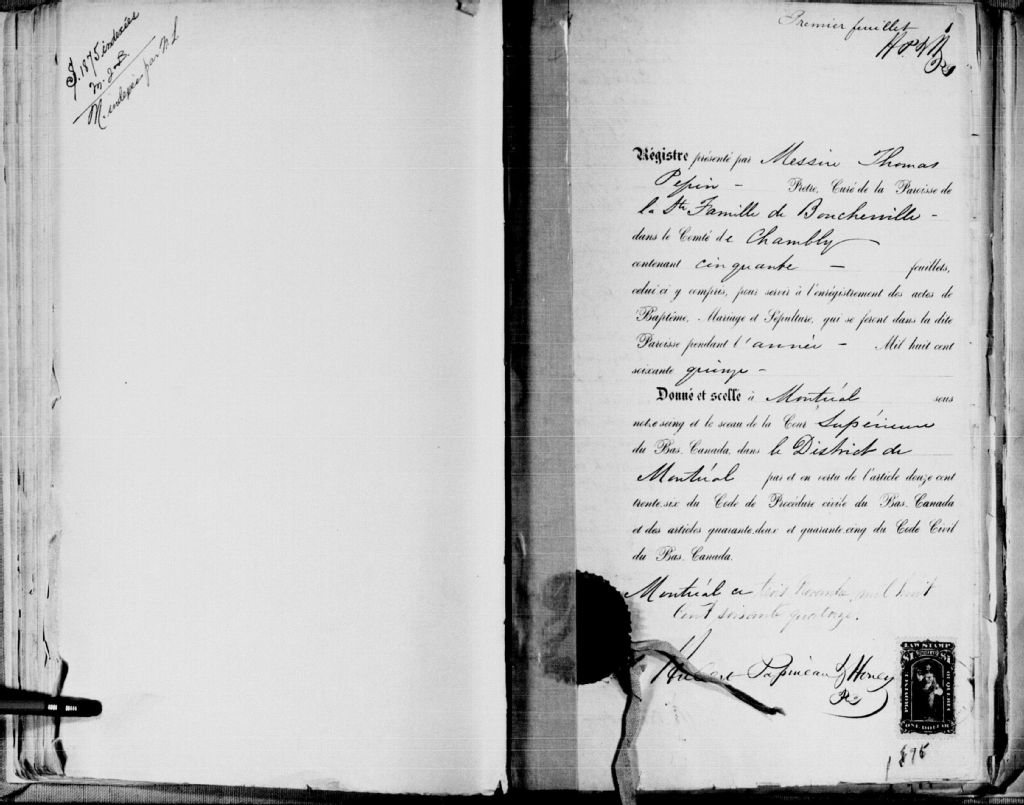 J. 1875 indexées
M. indexés par M. L
Premier feuillet
H P & H
Ps
Régistre présenté par Messire Thomas
Pepin – Prêtre, Curé de la Paroisse de
la Ste Famille de Boucherville –
dans le Comté de Chambly
contenant cinquante – feuillets,
celui ci y compris, pour servir à l'enrégistrement des actes de
Baptême, Mariage et Sépulture, qui se feront dans la dite
Paroisse pendant l'année – Mil huit cent
soixante quinze –
Donné et scellé à Montréal sous
notre seing et le sceau de la Cour Supérieure
du Bas-Canada, dans le District de
Montréal par et en vertu de l'article douze cent
trente-six du Code de Procédure civile du Bas-Canada
et des articles quarante-deux et quarante-cinq du Code Civil
du Bas-Canada.
Montréal ce trois Novembre mil huit
Cent soixante quatorze.
Hubert Papineau & Honey
Ps
LAW STAMP
$1 $1
PROVINCE OF QUEBEC
ONE DOLLAR
1875